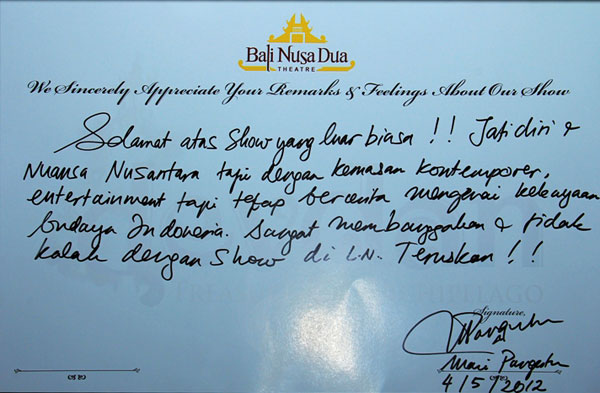 Bali Nusa Dua
THEATRE
We Sincerely Appreciate Your Remarks & Feelings About Our Show
Selamat atas show yang luar biasa !! Jati diri &
Nuansa Nusantara tapi dengan kemasan kontemporer,
entertainment tapi tetap bercerita mengenai kekayaan
budaya Indonesia. Sangat membanggakan & tidak
kalah dengan show di L.N. Teruskan !!
Signature,
Mari Pangestu
4/5/2012